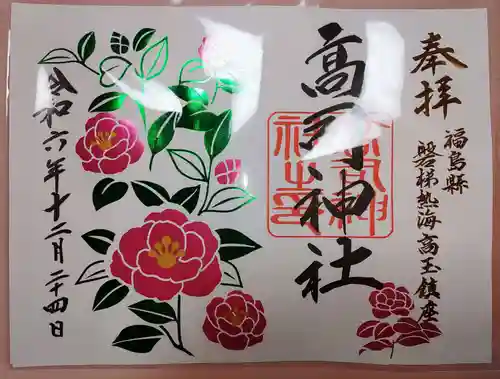 奉拝
福島縣
磐梯熱海高玉鎮座
高司神社
令和六年十二月二十四日